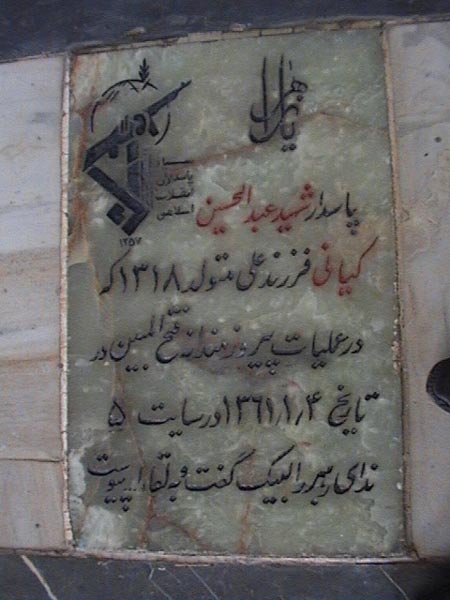 یا اللّه
سپاه
پاسداران
انقلاب
اسلامی
۱۳۵۷
پاسدار شهید عبدالحسین
کیانی فرزند علی متولد ۱۳۱۸ که
در عملیات پیروزمندانه فتح المبین در
تاریخ ۱۳۶۱/۱/۴ در سایت ۵
ندای رهبر را لبیک گفت و به لقاءالله پیوست